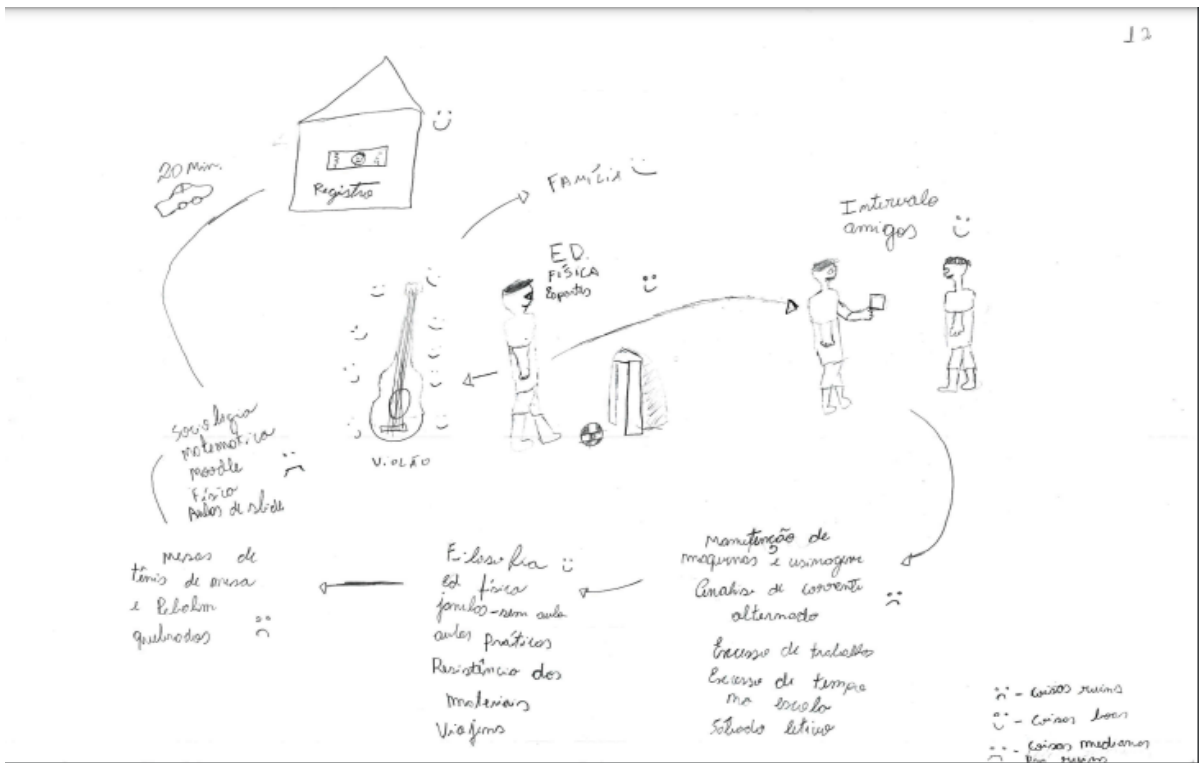 12
20 Min.
Registro
FAMÍLIA
ED.
FÍSICA
Esportes
Intervalo
amigos
VIOLÃO
Sociologia
matemática
moodle
Física
Aulas de slide
mesas de
tênis de mesa
e Pebolim
quebrados
Filosofia
Ed física
janelas-sem aula
aulas práticas
Resistência dos
materiais
Viajens
Manutenção de
maquinas e usinagem
Análise de corrente
alternado
Excesso de trabalhos
Excesso de tempo
na escola
Sábado letivo
- coisas ruins
- coisas boas
- coisas medianas
ruins